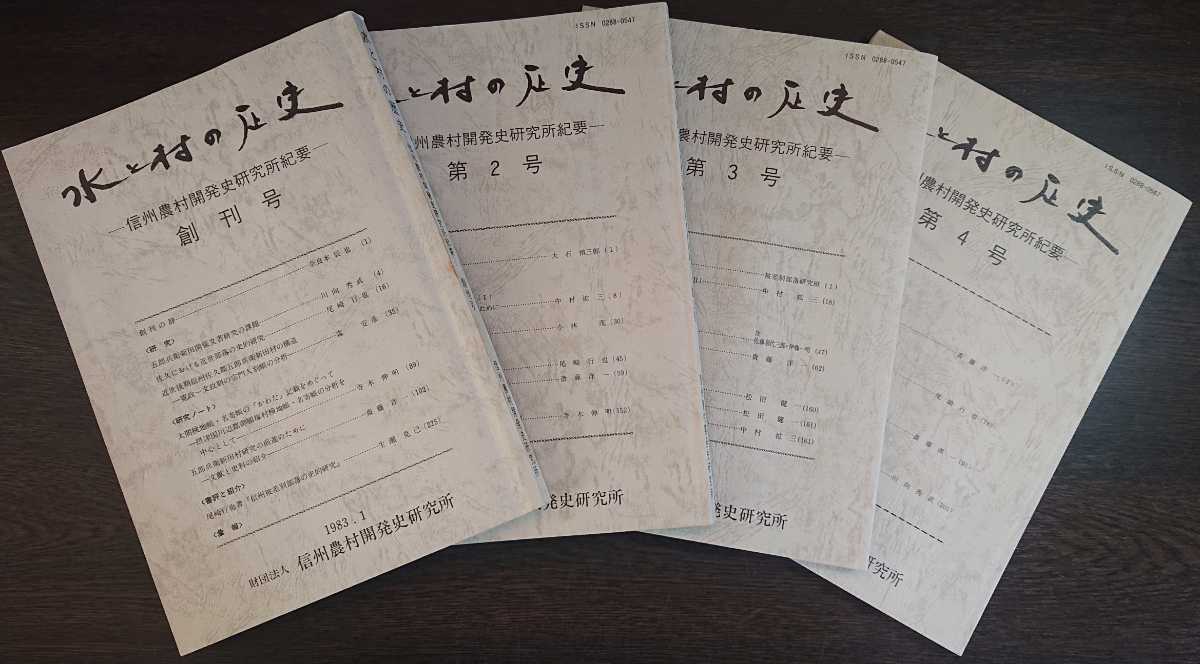 水と村の歴史
―信州農村開発史研究所紀要―
創刊号
創刊の辞 奈良本辰也 (1)
〈研究〉
五郎兵衛新田開発文書研究の課題 川向秀武 (4)
佐久における近世部落の史的研究 尾崎行也 (16)
近世後期信州佐久郡五郎兵衛新田村の構造
〈研究ノート〉
太閤検地帳・名寄帳の「かわた」記載をめぐって
中心として 寺本伸明 (89)
五郎兵衛新田村研究の前進のために
―文献と史料の紹介― 斎藤洋一 (102)
〈書評と紹介〉
尾崎行也著『信州被差別部落の史的研究』 生瀬克己 (225)
〈彙報〉
1983.1
財団法人 信州農村開発史研究所
ISSN 0288-0547
と村の歴史
州農村開発史研究所紀要―
第2号
大石慎三郎 (1)
ために
中村紘三 (8)
小林茂 (30)
尾崎行也 (45)
斎藤洋一 (59)
寺本伸明 (152)
発史研究所
ISSN 0288-0547
と村の歴史
農村開発史研究所紀要―
第3号
被差別部落研究班 (1)
中村紘三 (18)
斎藤洋一 (62)
松田健一 (160)
松田健一 (161)
中村紘三 (161)
発史研究所
ISSN 0288-0547
と村の歴史
農村開発史研究所紀要―
第4号
斎藤洋一
尾崎行也
斎藤洋一
川向秀武
研究所